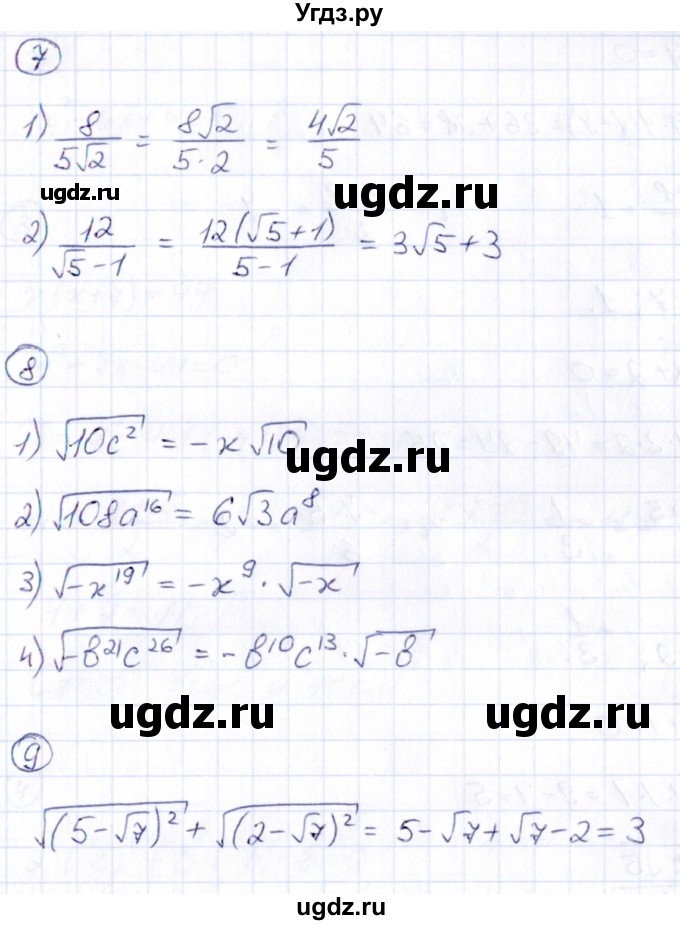 Угдз.ру
7
1) 8/(5√2) = 8√2/(5·2) = 4√2/5
ugdz.ru
ugdz.ru
2) 12/(√5-1) = 12(√5+1)/(5-1) = 3√5+3
8
1) √(10c²) = -x√10
ugdz.ru
2) √(108a¹⁶) = 6√3a⁸
3) √(-x¹⁹) = -x⁹·√(-x)
4) √(-b²¹c²⁶) = -b¹⁰c¹³·√(-b)
ugdz.ru
ugdz.ru
9
√((5-√7)²) + √((2-√7)²) = 5-√7+√7-2 = 3
ugdz.ru